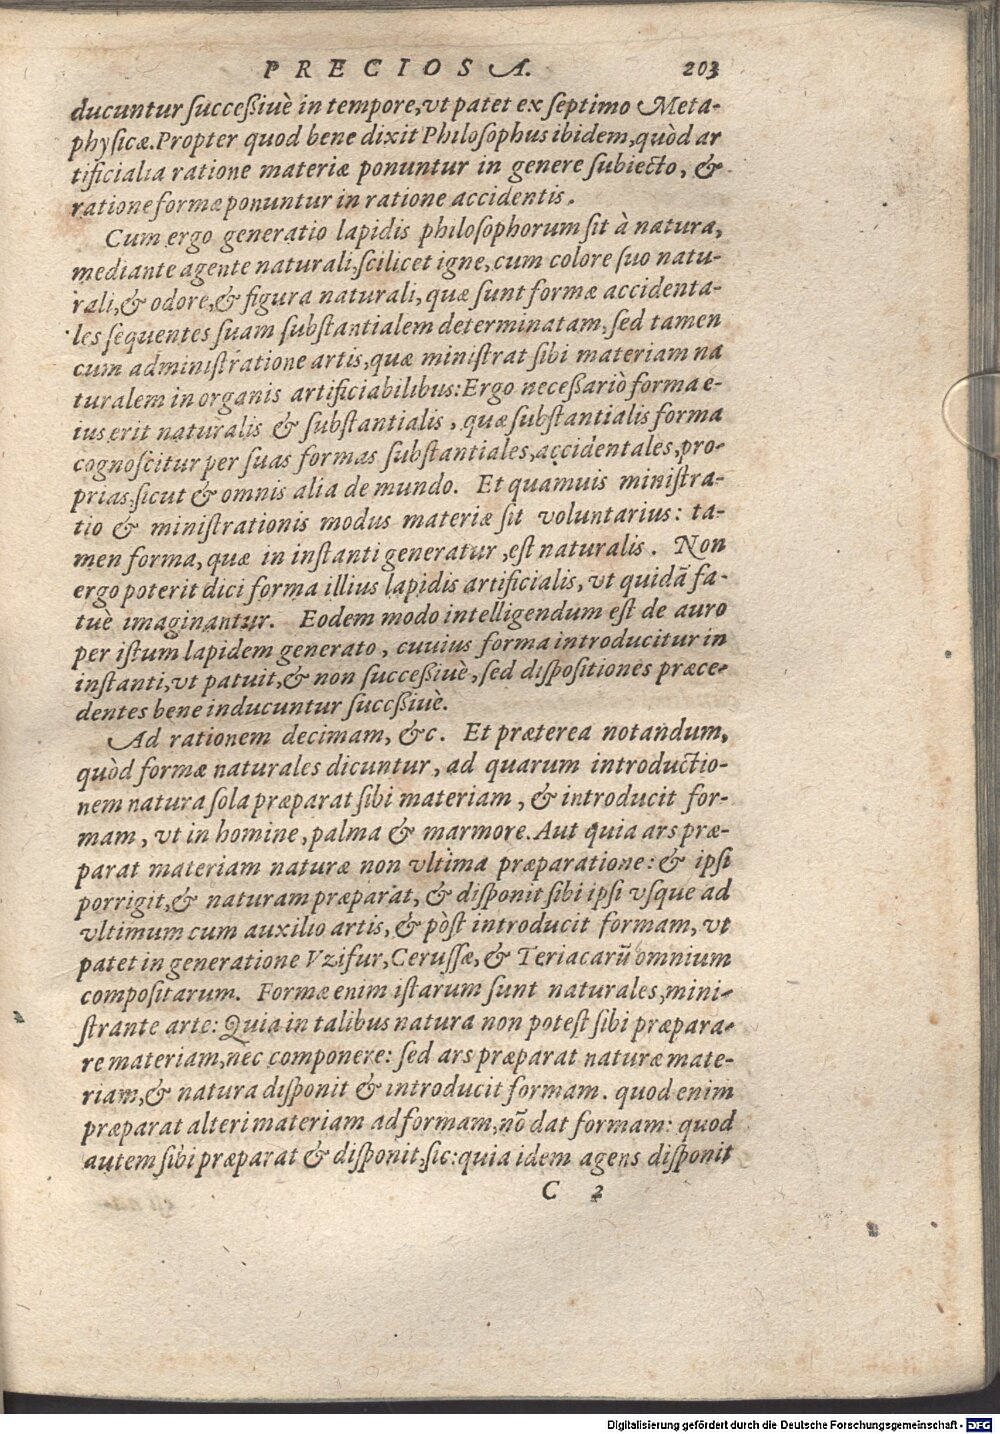 PRECIOSA. 203
ducuntur succeßiuè in tempore,vt patet ex septimo Meta-
physicæ.Propter quod bene dixit Philosophus ibidem,quòd ar
tificialia ratione materiæ ponuntur in genere subiecto, &
ratione formæ ponuntur in ratione accidentis.
Cum ergo generatio lapidis philosophorum sit à natura,
mediante agente naturali,scilicet igne,cum colore suo natu-
rali,& odore,& figura naturali,quæ sunt formæ accidenta-
les sequentes suam substantialem determinatam,sed tamen
cum administratione artis,quæ ministrat sibi materiam na
turalem in organis artificiabilibus:Ergo neceßariò forma e-
ius erit naturalis & substantialis, quæ substantialis forma
cognoscitur per suas formas substantiales,accidentales,pro-
prias,sicut & omnis alia de mundo. Et quamuis ministra-
tio & ministrationis modus materiæ sit voluntarius: ta-
men forma,quæ in instanti generatur,est naturalis. Non
ergo poterit dici forma illius lapidis artificialis, vt quidã fa-
tuè imaginantur. Eodem modo intelligendum est de auro
per istum lapidem generato, cuuius forma introducitur in
instanti,vt patuit,& non succeßiuè,sed dispositiones præce-
dentes bene inducuntur succßiuè.
Ad rationem decimam, &c. Et præterea notandum,
quòd formæ naturales dicuntur, ad quarum introductio-
nem natura sola præparat sibi materiam, & introducit for-
mam, vt in homine,palma & marmore. Aut quia ars præ-
parat materiam naturæ non vltima præparatione: & ipsi
porrigit,& naturam præparat, & disponit sibi ipsi vsque ad
vltimum cum auxilio artis,& pòst introducit formam, vt
patet in generatione Vzifur,Cerussæ,& Teriacarũ omnium
compositarum. Formæ enim istarum sunt naturales,mini-
strante arte: Quia in talibus natura non potest sibi præpara-
re materiam,nec componere: sed ars præparat naturæ mate-
riam,& natura disponit & introducit formam. quod enim
præparat alteri materiam ad formam,nõ dat formam: quod
autem sibi præparat & disponit,sic:quia idem agens disponit
C 2
Digitalisierung gefördert durch die Deutsche Forschungsgemeinschaft - DFG